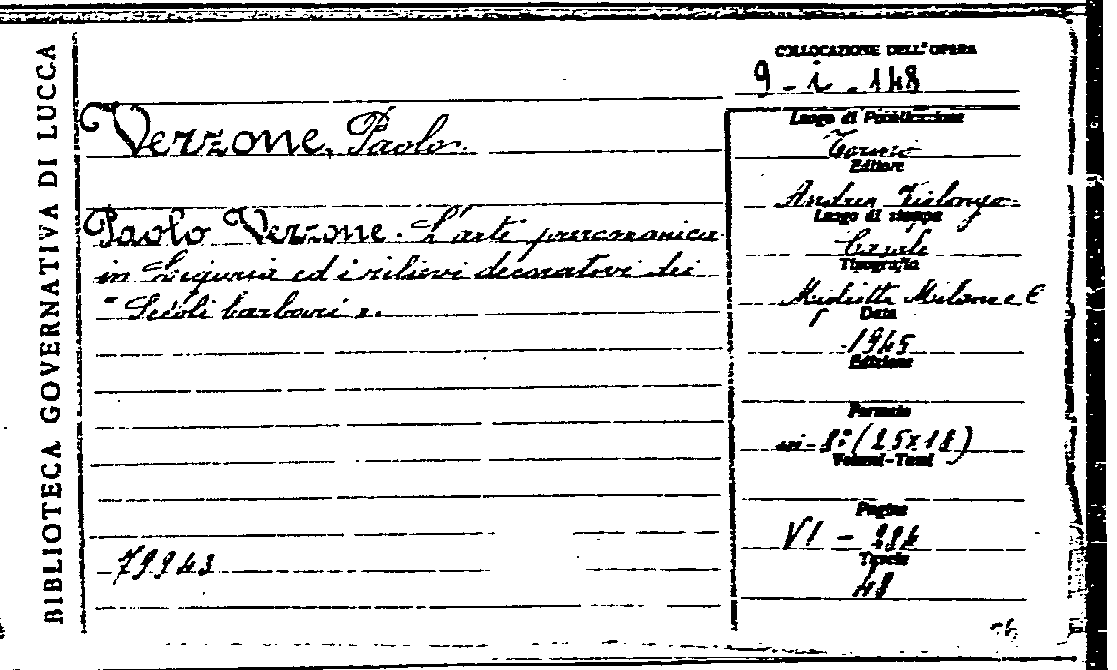 BIBLIOTECA GOVERNATIVA DI LUCCA
Verzone, Paolo.
Paolo Verzone. L'arte preromanica
in Liguria ed i rilievi decorativi dei
"Secoli barbari".
79943
COLLOCAZIONE DELL'OPERA
9 - i - 148
Luogo di Pubblicazione
Torino
Editore
Andrea Viglongo
Luogo di stampa
Casale
Tipografia
Miglietta Milano e C
Data
1945
Edizione
Formato
in-8° (25x18)
Volumi-Tomi
Pagine
VI -
Tavole
48